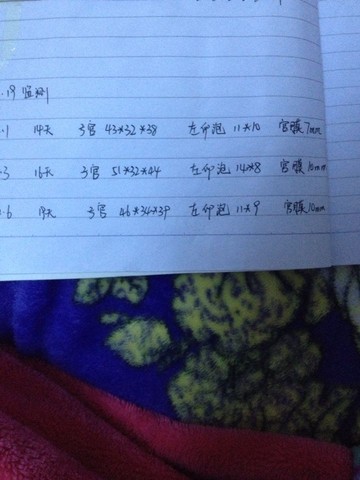 .19 监测
.1 14天 子宫 43*32*38 左卵泡 11*10 宫膜7mm
.3 16天 子宫 51*32*44 左卵泡 14*8 宫膜10mm
.6 19天 子宫 46*34*39 左卵泡 11*9 宫膜10mm